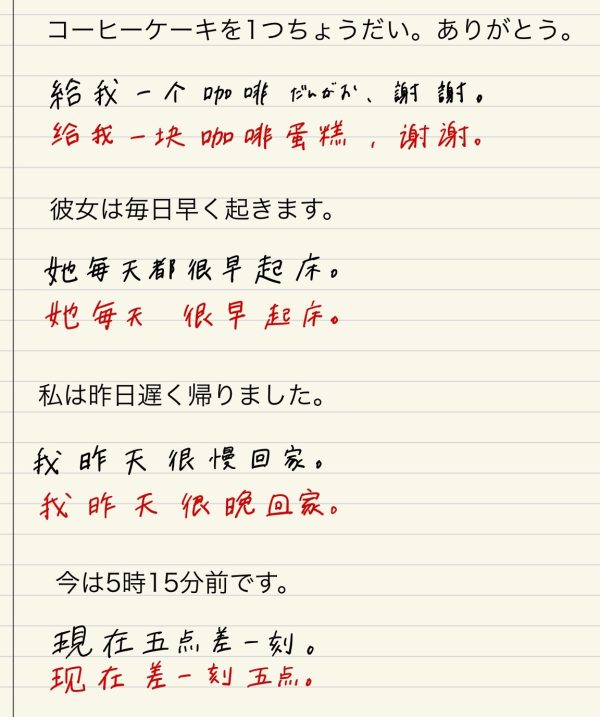 コーヒーケーキを1つちょうだい。ありがとう。
給我一个咖啡だんがお、謝謝。
给我一块咖啡蛋糕，谢谢。
彼女は毎日早く起きます。
她每天都很早起床。
她每天 很早起床。
私は昨日遅く帰りました。
我昨天很慢回家。
我昨天很晚回家。
今は5時15分前です。
現在五点差一刻。
现在差一刻五点。